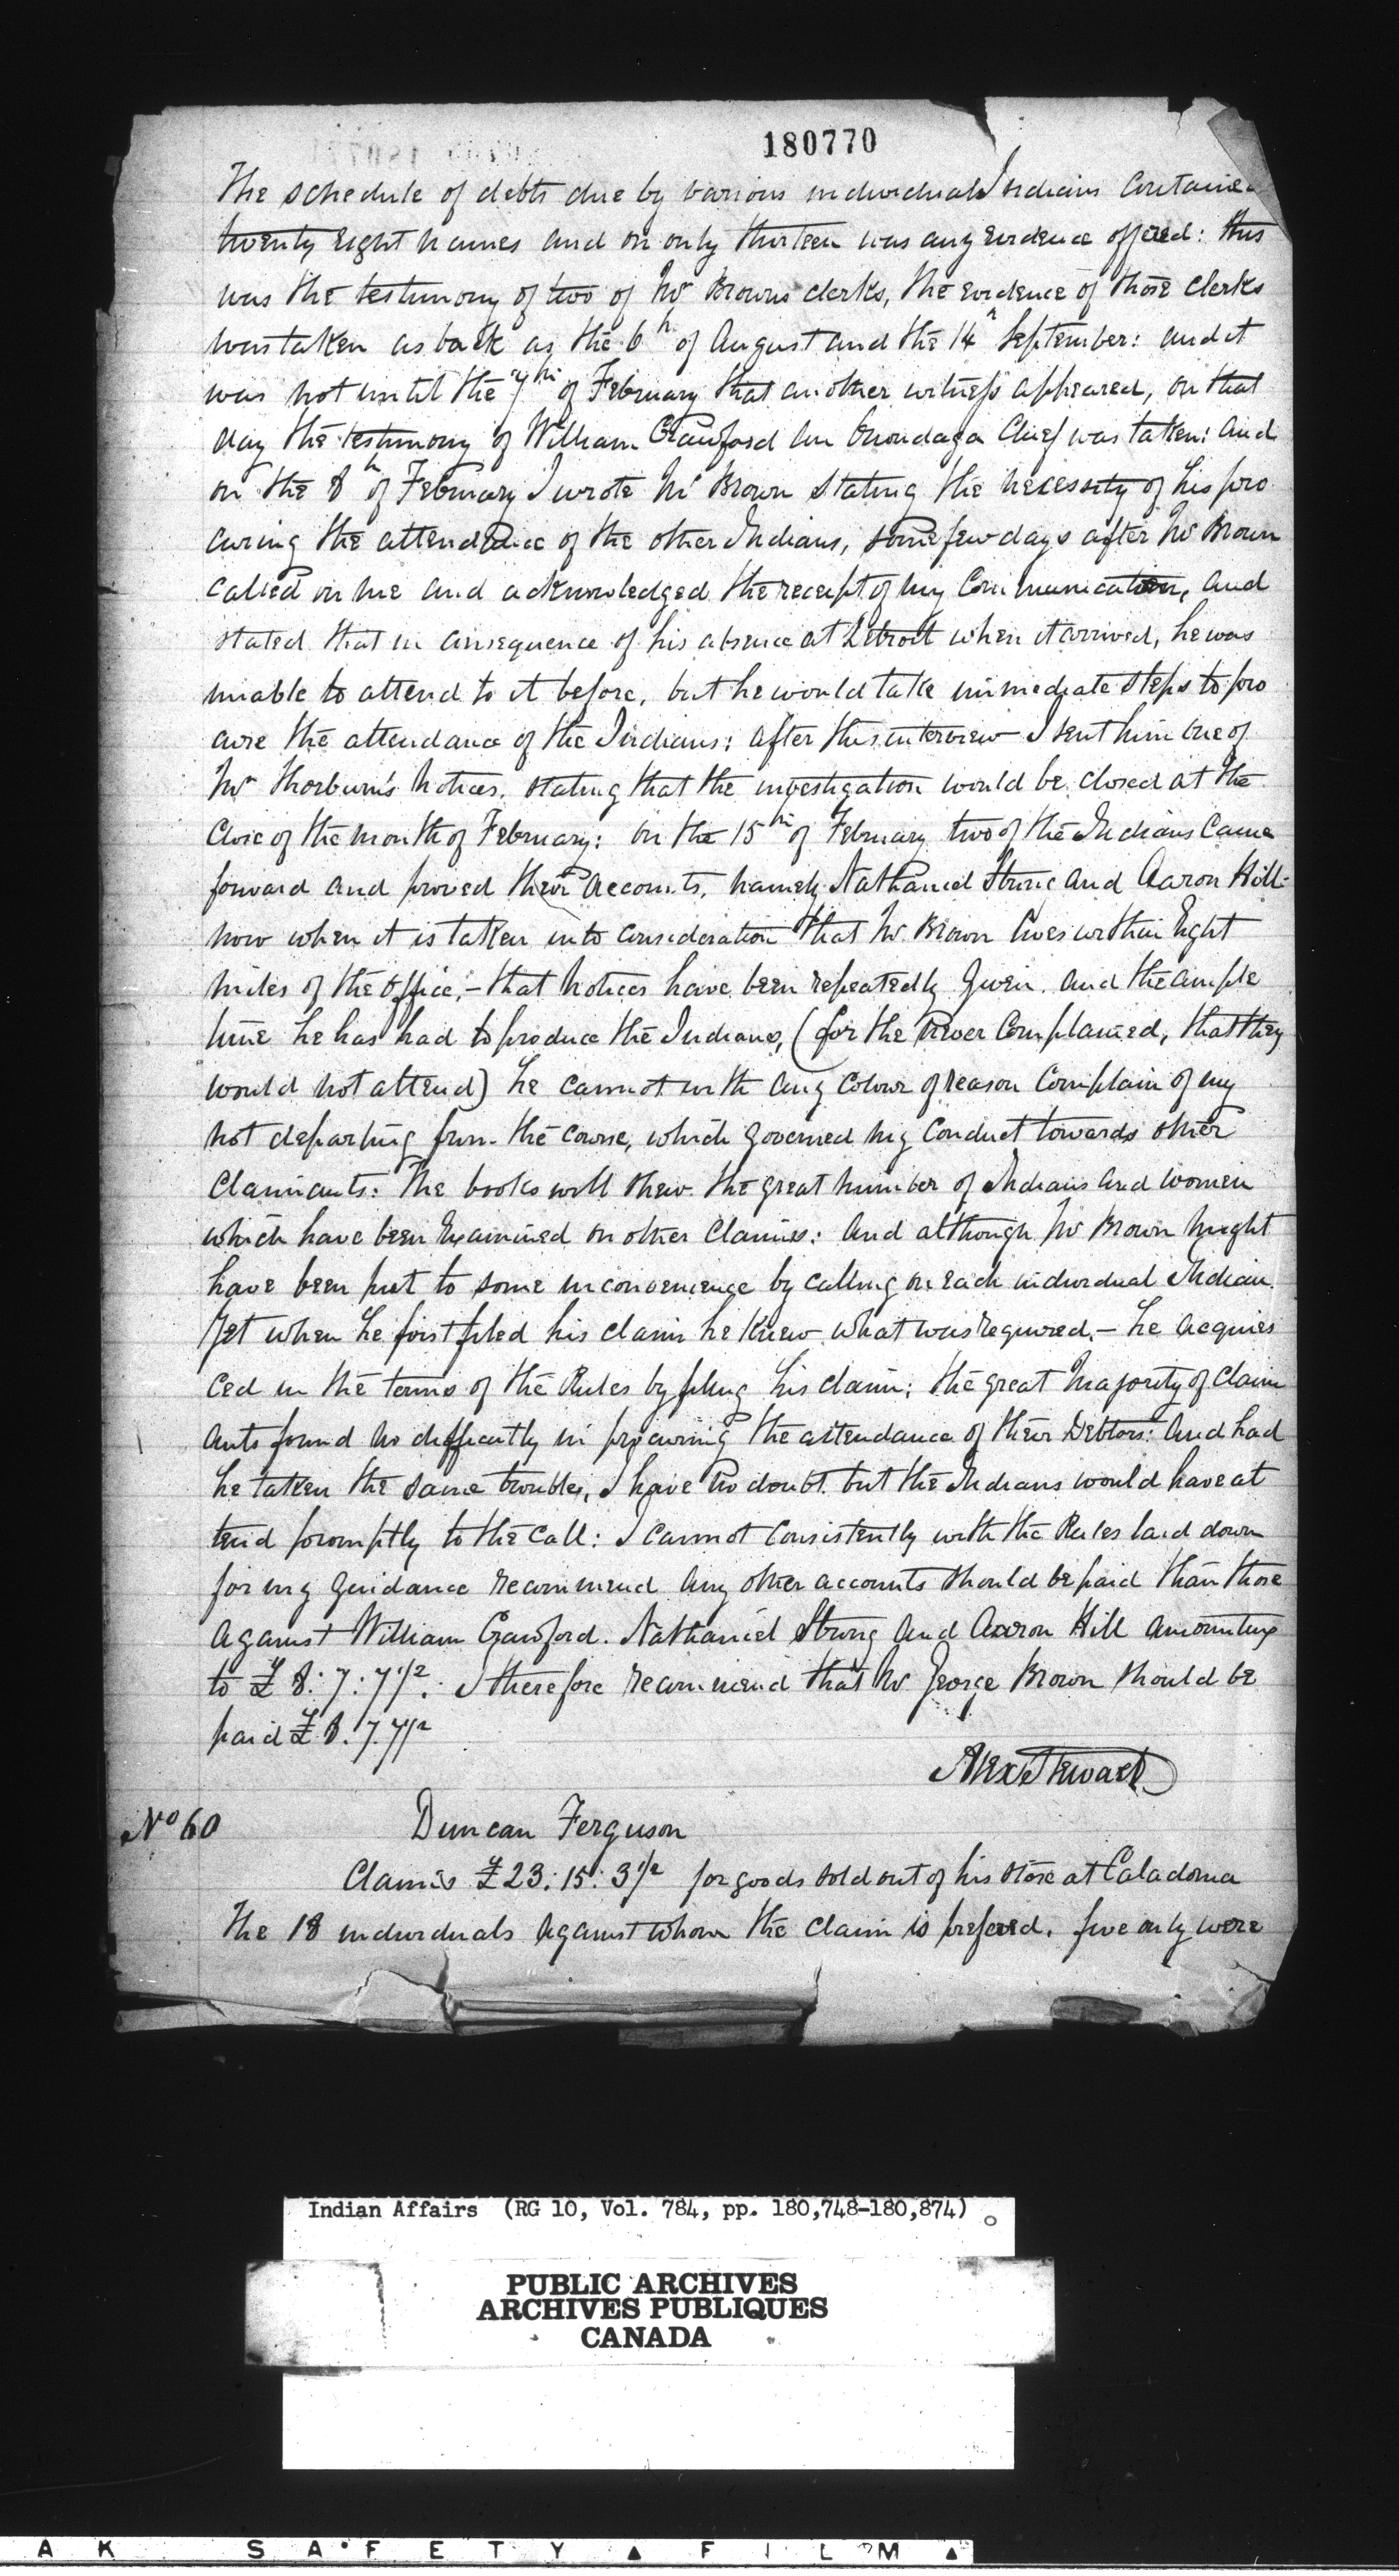 180770
The schedule of debts due by various individual Indians contained
twenty eight names and on only thirteen was any evidence offered: this
was the testimony of two of Mr Browns clerks, the evidence of those clerks
was taken as back as the 6th of August and the 14th September: and it
was not until the 7th of February that another witness appeared, on that
day the testimony of William Crawford an Onondaga Chief was taken: and
on the 8th of February I wrote Mr Brown stating the necessity of his pro
curing the attendance of the other Indians, some few days after Mr Brown
called on me and acknowledged the receipt of my communication, and
stated that in consequence of his absence at Detroit when it arrived, he was
unable to attend to it before, but he would take immediate steps to pro
cure the attendance of the Indians: after this interview I sent him one of
Mr Thorburn's Notices, stating that the investigation would be closed at the
close of the month of February: on the 15th of February two of the Indians came
forward and proved their accounts, namely Nathaniel Strong and Aaron Hill:
now when it is taken into consideration that Mr Brown lives within Eight
miles of the office,- that Notices have been repeatedly given. and the ample
time he has had to produce the Indians, (for the never complained, that they
would not attend) he cannot with any colour of reason complain of my
not departing from the course, which governed my conduct towards other
claimants: The books will shew the great number of Indians and women
which have been Examined on other claims: And although Mr Brown might
have been put to some inconvenience by calling on each individual Indian.
Yet when he first filed his claim he knew what was required,- he acquies
ced in the terms of the Rules by filing his claim; the great majority of claim
ants found no difficulty in procuring the attendance of their Debtors: And had
he taken the same trouble, I have no doubt but the Indians would have at
tend promptly to the call: I cannot consistently with the Rules laid down
for my guidance recommend any other accounts should be paid than those
against William Crawford. Nathaniel Strong and Aaron Hill amounting
to £8: 7: 7½. I therefore recommend that Mr George Brown should be
paid £8. 7. 7½
Alex Stewart
No 60
Duncan Ferguson
Claims £23: 15: 3½ for goods sold out of his store at Caladonia
The 18 individuals against whom the claim is prefered. five only were
Indian Affairs (RG 10, Vol. 784, pp. 180,748-180,874)
PUBLIC ARCHIVES
ARCHIVES PUBLIQUES
CANADA
A K SAFETY ▲ FILM ▲